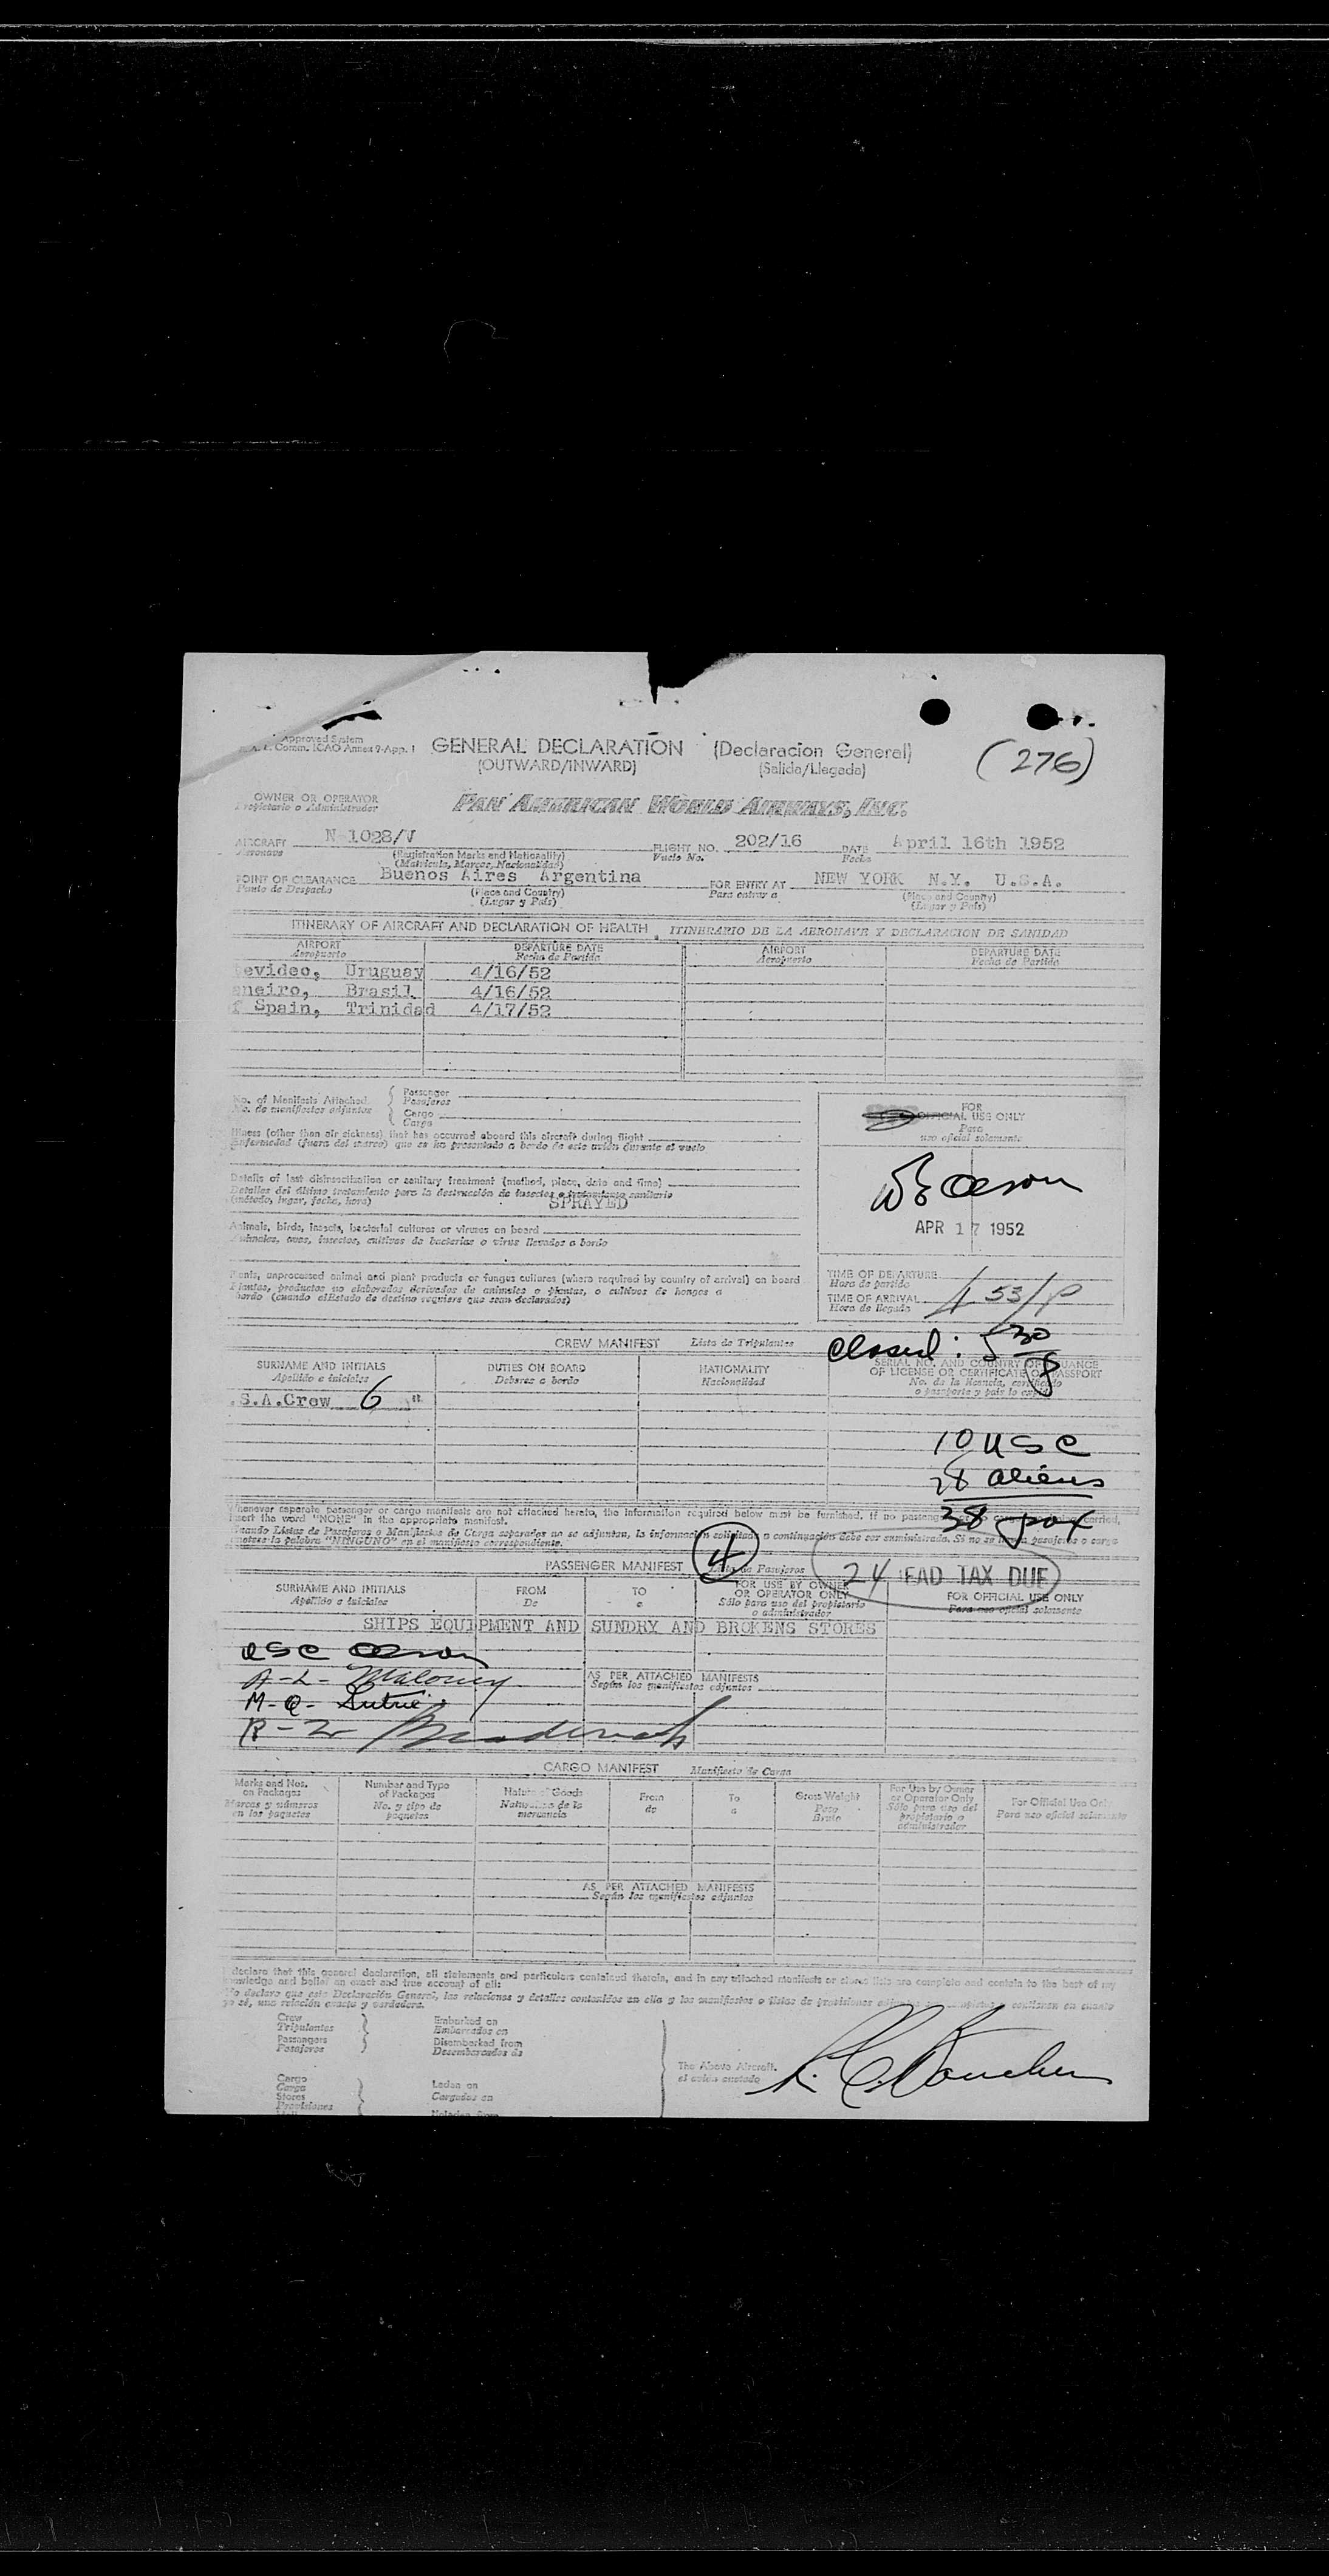 Approved System
Comm. ICAO Annex 9-App. 1
GENERAL DECLARATION (Declaracion General)
(OUTWARD/INWARD) (Salida/Llegada)
(276)
OWNER OR OPERATOR
Propietario o Administrador
PAN AMERICAN WORLD AIRWAYS, INC.
AIRCRAFT N-1028/V FLIGHT NO. 202/16 DATE April 16th 1952
Aeronave (Registration Marks and Nationality) Vuelo No. Fecha
(Matricula, Marcas, Nacionalidad)
POINT OF CLEARANCE Buenos Aires Argentina FOR ENTRY AT NEW YORK N.Y. U.S.A.
Punto de Despacho (Place and Country) Para entrar a (Place and Country)
(Lugar y Pais) (Lugar y Pais)
ITINERARY OF AIRCRAFT AND DECLARATION OF HEALTH ITINERARIO DE LA AERONAVE Y DECLARACION DE SANIDAD
AIRPORT DEPARTURE DATE AIRPORT DEPARTURE DATE
Aeropuerto Fecha de Partida Aeropuerto Fecha de Partida
evideo, Uruguay 4/16/52
neiro, Brasil 4/16/52
f Spain, Trinidad 4/17/52
No. of Manifests Attached { Passenger
No. de manifiestos adjuntos Pasajeros
Cargo
Carga
FOR
OFFICIAL USE ONLY
Para
uso oficial solamente
Illness (other than air sickness) that has occurred aboard this aircraft during flight
Enfermedad (fuera del mareo) que se ha presentado a bordo de este avión durante el vuelo
Details of last disinsectization or sanitary treatment (method, place, date and time)
Detalles del último tratamiento para la destrucción de insectos o tratamiento sanitario
(método, lugar, fecha, hora)
SPRAYED
Olson
APR 17 1952
Animals, birds, insects, bacterial cultures or viruses on board
Animales, aves, insectos, cultivos de bacterias o virus llevados a bordo
Plants, unprocessed animal and plant products or fungus cultures (where required by country of arrival) on board
Plantas, productos no elaborados derivados de animales o plantas, o cultivos de hongos a
bordo (cuando el Estado de destino requiere que sean declarados)
TIME OF DEPARTURE
Hora de partida
TIME OF ARRIVAL 4 53/P
Hora de llegada
closed: 5 30 P
CREW MANIFEST Lista de Tripulantes
SURNAME AND INITIALS DUTIES ON BOARD NATIONALITY SERIAL NO. AND COUNTRY OF ISSUANCE
OF LICENSE OR CERTIFICATE OR PASSPORT
Apellido e iniciales Deberes a bordo Nacionalidad No. de la licencia, certificado
o pasaporte y pais lo
.S.A.Crew 6
10 USC
28 aliens
38 pax
Whenever separate passenger or cargo manifests are not attached hereto, the information required below must be furnished. If no passengers carried,
insert the word "NONE" in the appropriate manifest.
Cuando Listas de Pasajeros o Manifiestos de Carga separados no se adjuntan, la información solicitada a continuación debe ser suministrada. Si no se lleva pasajeros o carga
anótese la palabra "NINGUNO" en el manifiesto correspondiente.
PASSENGER MANIFEST 4 de Pasajeros
24 HEAD TAX DUE
SURNAME AND INITIALS FROM TO FOR USE BY OWNER
OR OPERATOR ONLY FOR OFFICIAL USE ONLY
Apellido e iniciales De a Sólo para uso del propietario
o administrador Para uso oficial solamente
SHIPS EQUIPMENT AND SUNDRY AND BROKENS STORES
USC Olson
A-L- Maloney
AS PER ATTACHED MANIFESTS
Según los manifiestos adjuntos
M-Q-
R-2-
CARGO MANIFEST Manifiesto de Carga
Marks and Nos.
on Packages
Marcas y números
en los paquetes
Number and Type
of Packages
No. y tipo de
paquetes
Nature of Goods
Naturaleza de la
mercancia
From
de
To
a
Gross Weight
Peso
Bruto
For Use by Owner
or Operator Only
Sólo para uso del
propietario o
administrador
For Official Use Only
Para uso oficial solamente
AS PER ATTACHED MANIFESTS
Según los manifiestos adjuntos
I declare that this general declaration, all statements and particulars contained therein, and in any attached manifests or stores lists are complete and contain to the best of my
knowledge and belief an exact and true account of all:
Yo declaro que esta Declaración General, las relaciones y detalles contenidos en ella y los manifiestos o listas de provisiones contienen en cuanto
yo sé, una relación exacta y verdadera.
Crew
Tripulantes
Passengers
Pasajeros
Embarked on
Embarcados en
Disembarked from
Desembarcados de
Cargo
Carga
Stores
Provisiones
Laden on
Cargados en
The Above Aircraft.
el avión anotado